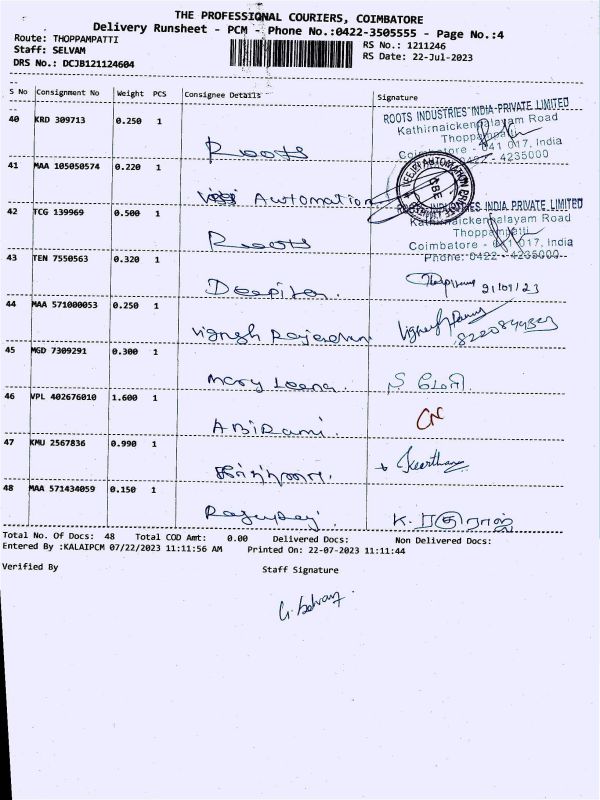 THE PROFESSIONAL COURIERS, COIMBATORE
Delivery Runsheet - PCM - Phone No.:0422-3505555 - Page No.:4
Route: THOPPAMPATTI
RS No.: 1211246
Staff: SELVAM
RS Date: 22-Jul-2023
DRS No.: DCJB121124604
S No Consignment No Weight PCS Consignee Details Signature
40 KRD 309713 0.250 1
ROOTS INDUSTRIES INDIA PRIVATE LIMITED
Kathirnaickenpalayam Road
Thoppampatti
Coimbatore - 641 017, India
0422 - 4235000
Roots
41 MAA 105050574 0.220 1
Automation
42 TCG 139969 0.500 1
ROOTS INDUSTRIES INDIA PRIVATE LIMITED
Kathirnaickenpalayam Road
Thoppampatti
Coimbatore - 641 017, India
Phone: 0422 - 4235000
Roots
43 TEN 7550563 0.320 1
Deepika.
44 MAA 571000053 0.250 1
Vignesh
45 MGD 7309291 0.300 1
Mary Leena.
46 VPL 402676010 1.600 1
CN
ABiRami.
47 KMU 2567836 0.990 1
Keerthana
48 MAA 571434059 0.150 1
K. ரகுராஜ்
Total No. Of Docs: 48 Total COD Amt: 0.00 Delivered Docs: Non Delivered Docs:
Entered By :KALAIPCM 07/22/2023 11:11:56 AM Printed On: 22-07-2023 11:11:44
Verified By Staff Signature
G. Selvam